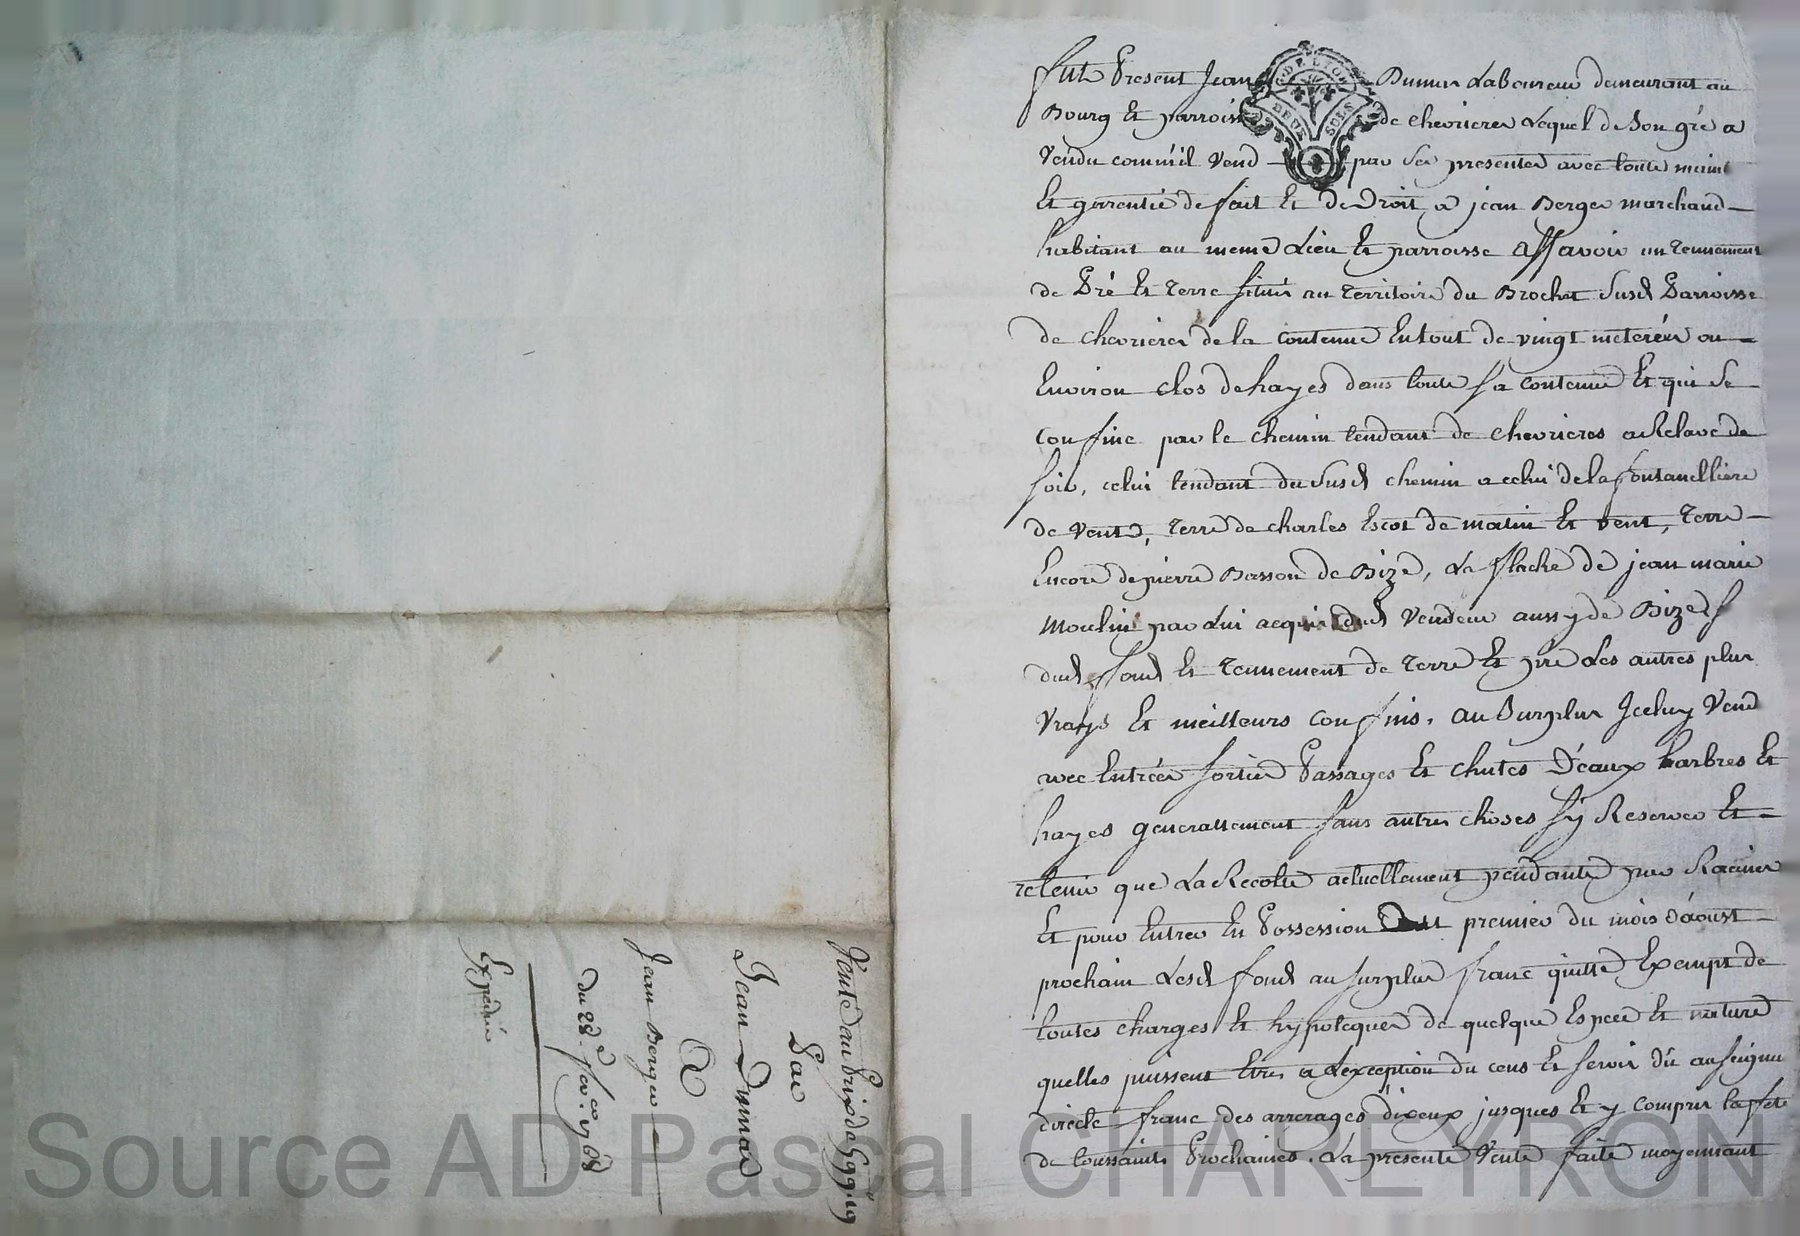 fut Present Jean Dumas Laboureur demeurant au
Bourg Et parroisse de chevrieres Lequel de Son gré a
Vendu comm'il Vend par Ses presentes avec toute maint
Et garrentie de fait Et de Droit a jean Berger marchand
habitant au meme Lieu Et parroisse assavoir un tennement
de Pré Et terre situés au territoire du Brochet susd Parroisse
de chevrieres de la contenue En tout de vingt meterées ou
Environ clos de hayes dans toute sa contenue Et qui se
confine par le chemin tendant de chevrieres a
soir, celui tendant du susd chemin a celui de la fontanelliere
de vent, terre de charles Escot de matin Et vent, terre
Encore de pierre Basson de Bize, La flache de jean marie
Moulin par Lui acquis dud Vendeur aussy de Bize
dud fond Et tennement de terre Et pré Les autres plus
Vrays Et meilleurs confins. au Surplus Iceluy Vend
avec Entrées sorties Passages Et chutes D'eaux harbres Et
hayes generallement sans autres choses s'y Reserver Et
retenir que La Recolte actuellement pendante par Racines
Et pour Entrer En Possession premier du mois d'aoust
prochain Lesd fond au surplus franc quitte Exempt de
toutes charges Et hypoteques de quelque Espece Et nature
quelles puissent Etre a L'exception du cens Et servis dû au seigneur
directe franc des arrerages d'iceux jusques Et y compris la fete
de toussaints Prochaines. La presente Vente faite moyennant
DE LYON
DEUX SOLS
Vente au Prix de
Par
Jean Dumas
A
Jean Berger
du 28
Expediée
Source AD Pascal CHAREYRON